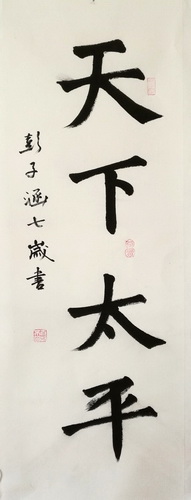 天下太平
彭子涵七歲書